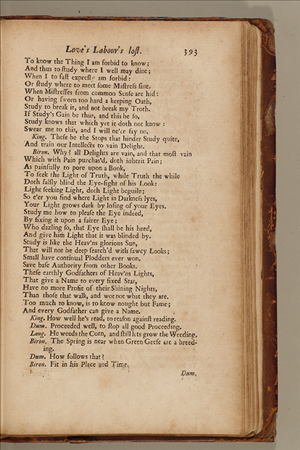 Love's Labour's lost. 393
To know the Thing I am forbid to know;
And thus to study where I well may dine;
When I to fast expressly am forbid:
Or study where to meet some Mistress fine.
When Mistresses from common Sense are hid:
Or having sworn too hard a keeping Oath,
Study to break it, and not break my Troth.
If Study's Gain be thus, and this be so,
Study knows that which yet it doth not know:
Swear me to this, and I will ne'er say no.
King. These be the Stops that hinder Study quite,
And train our Intellects to vain Delight.
Biron. Why! all Delights are vain, and that most vain
Which with Pain purchas'd, doth inherit Pain;
As painfully to pore upon a Book,
To seek the Light of Truth, while Truth the while
Doth falsly blind the Eye-sight of his Look:
Light seeking Light, doth Light beguile;
So e'er you find where Light in Darkness lyes,
Your Light grows dark by losing of your Eyes.
Study me how to please the Eye indeed,
By fixing it upon a fairer Eye;
Who dazling so, that Eye shall be his heed,
And give him Light that it was blinded by.
Study is like the Heav'ns glorious Sun,
That will not be deep search'd with sawcy Looks;
Small have continual Plodders ever won,
Save base Authority from other Books.
These earthly Godfathers of Heav'ns Lights,
That give a Name to every fixed Star,
Have no more Profit of their Shining Nights,
Than those that walk, and wot not what they are.
Too much to know, is to know nought but Fame;
And every Godfather can give a Name.
King. How well he's read, to reason against reading.
Dum. Proceeded well, to stop all good Proceeding.
Long. He weeds the Corn, and still lets grow the Weeding.
Biron. The Spring is near when Green Geese are a breed-
ing.
Dum. How follows that?
Biron. Fit in his Place and Time.
Dum.